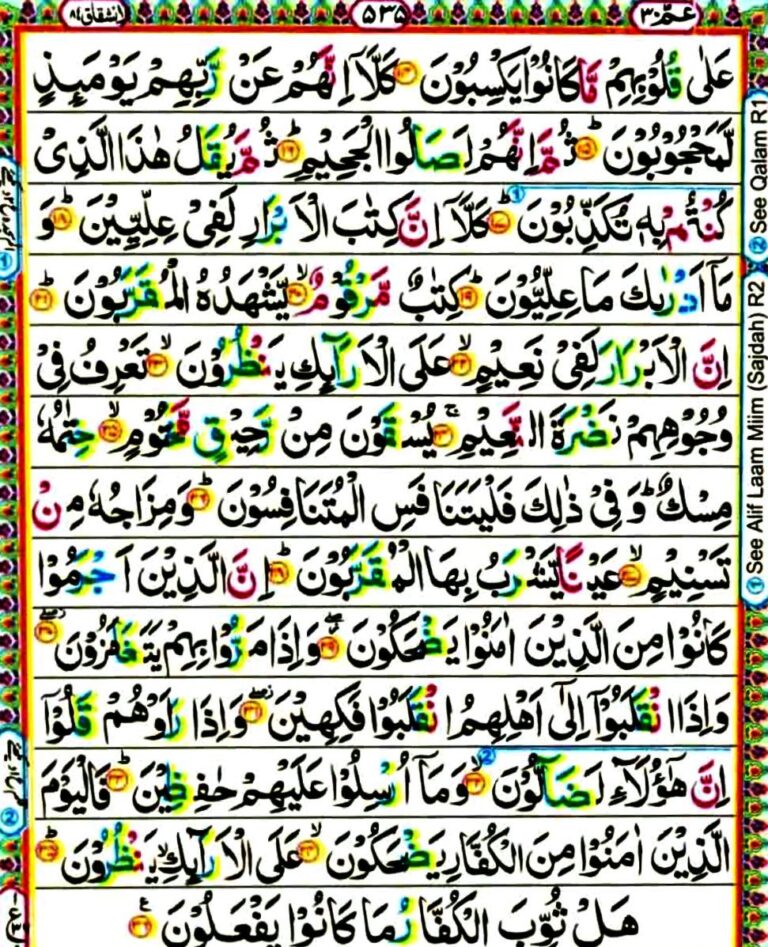 عمّ ٣٠
٥٣٥
انشقاق ٨٤
عَلٰى قُلُوْبِهِمْ مَّا كَانُوْا يَكْسِبُوْنَ ۝١٤ كَلَّاۤ اِنَّهُمْ عَنْ رَّبِّهِمْ يَوْمَىِٕذٍ
لَّمَحْجُوْبُوْنَ ؕ۝١٥ ثُمَّ اِنَّهُمْ لَصَالُوا الْجَحِيْمِ ؕ۝١٦ ثُمَّ يُقَالُ هٰذَا الَّذِىْ
كُنْتُمْ بِهٖ تُكَذِّبُوْنَ ؕ۝١٧ كَلَّاۤ اِنَّ كِتٰبَ الْاَبْرَارِ لَفِىْ عِلِّيِّيْنَ ؕ۝١٨ وَ
مَاۤ اَدْرٰىكَ مَا عِلِّيُّوْنَ ؕ۝١٩ كِتٰبٌ مَّرْقُوْمٌ ۙ۝٢٠ يَّشْهَدُهُ الْمُقَرَّبُوْنَ ؕ۝٢١
اِنَّ الْاَبْرَارَ لَفِىْ نَعِيْمٍ ۙ۝٢٢ عَلَى الْاَرَآىِٕكِ يَنْظُرُوْنَ ۙ۝٢٣ تَعْرِفُ فِىْ
وُجُوْهِهِمْ نَضْرَةَ النَّعِيْمِ ۚ۝٢٤ يُسْقَوْنَ مِنْ رَّحِيْقٍ مَّخْتُوْمٍ ۙ۝٢٥ خِتٰمُهٗ
مِسْكٌ ؕ وَفِىْ ذٰلِكَ فَلْيَتَنَافَسِ الْمُتَنَافِسُوْنَ ؕ۝٢٦ وَمِزَاجُهٗ مِنْ
تَسْنِيْمٍ ۙ۝٢٧ عَيْنًا يَّشْرَبُ بِهَا الْمُقَرَّبُوْنَ ؕ۝٢٨ اِنَّ الَّذِيْنَ اَجْرَمُوْا
كَانُوْا مِنَ الَّذِيْنَ اٰمَنُوْا يَضْحَكُوْنَ ۖ۝٢٩ وَاِذَا مَرُّوْا بِهِمْ يَتَغَامَزُوْنَ ۖ۝٣٠
وَاِذَا انْقَلَبُوْۤا اِلٰٓى اَهْلِهِمُ انْقَلَبُوْا فَكِهِيْنَ ۖ۝٣١ وَاِذَا رَاَوْهُمْ قَالُوْۤا
اِنَّ هٰۤؤُلَآءِ لَضَآلُّوْنَ ۙ۝٣٢ وَمَاۤ اُرْسِلُوْا عَلَيْهِمْ حٰفِظِيْنَ ؕ۝٣٣ فَالْيَوْمَ
الَّذِيْنَ اٰمَنُوْا مِنَ الْكُفَّارِ يَضْحَكُوْنَ ۙ۝٣٤ عَلَى الْاَرَآىِٕكِ ۙ يَنْظُرُوْنَ ؕ۝٣٥
هَلْ ثُوِّبَ الْكُفَّارُ مَا كَانُوْا يَفْعَلُوْنَ ۝٣٦
① See Alif Laam Miim (Sajdah) R2 ② See Qalam R1